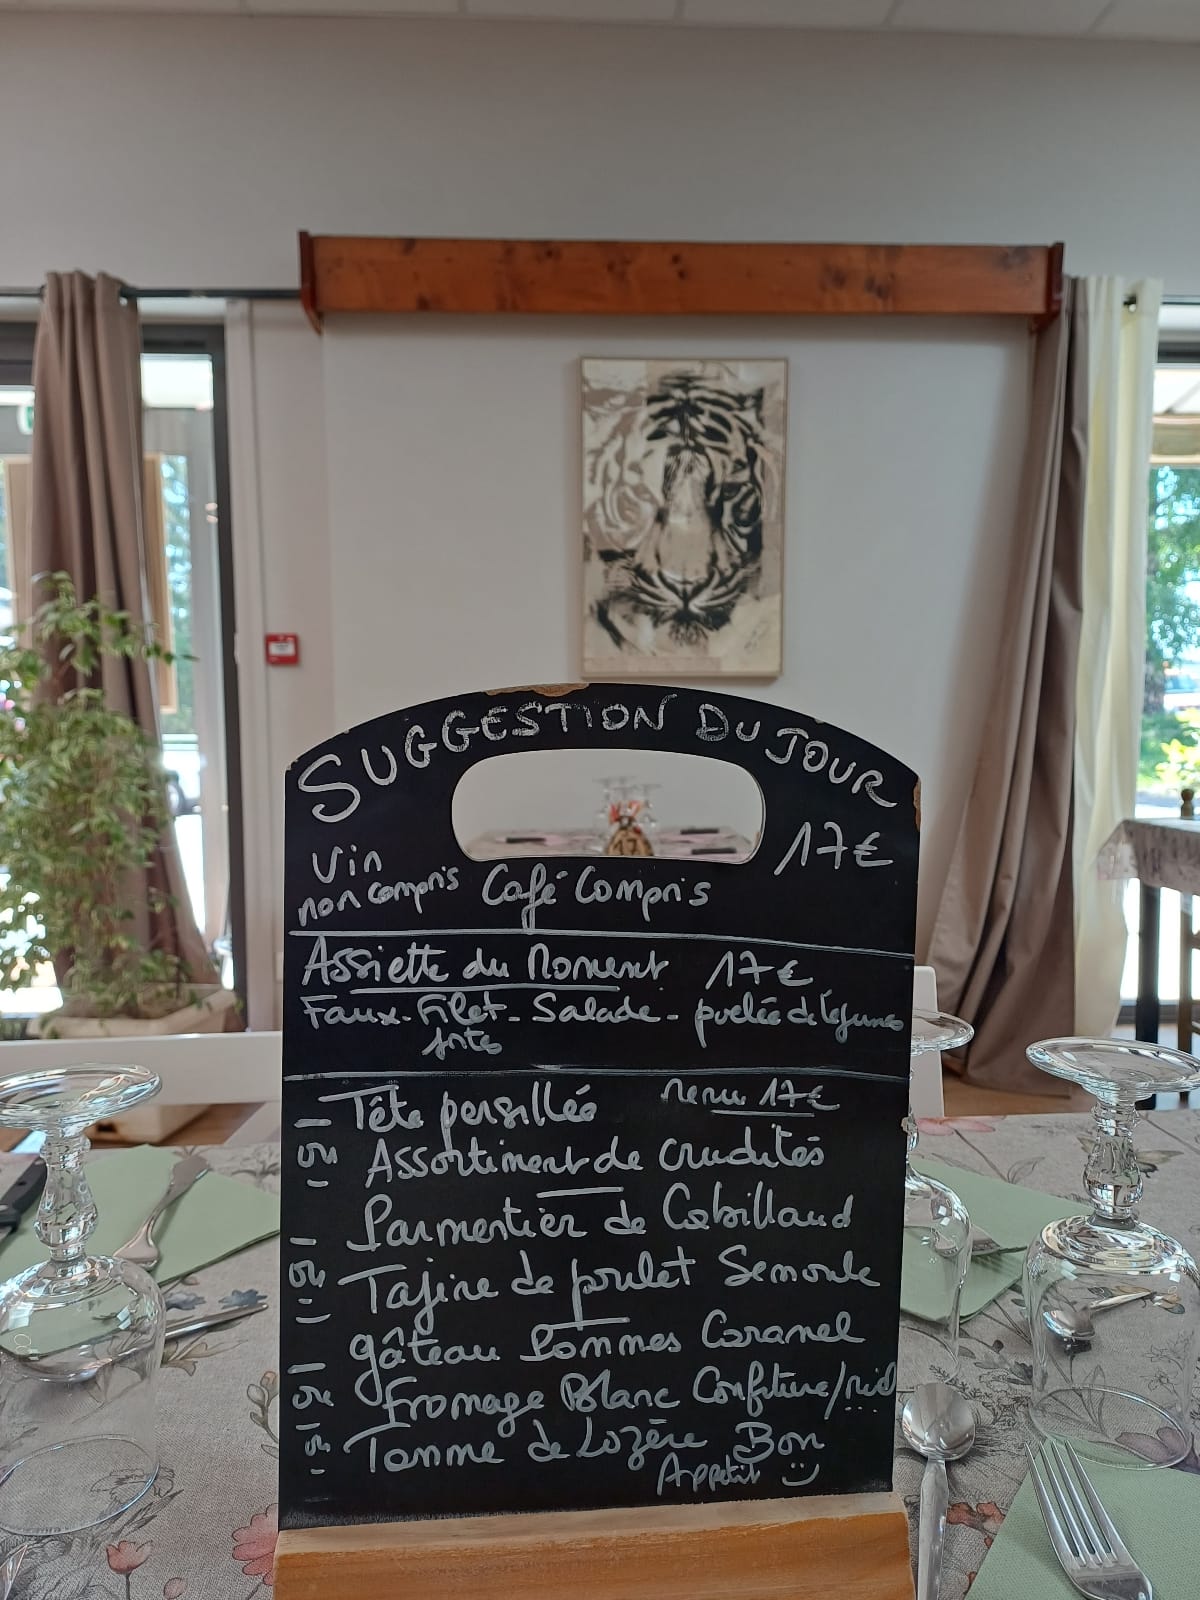 SUGGESTION DU JOUR
17€
Vin
non compris Café Compris
Assiette du Moment 17€
Faux-Filet - Salade - poêlée de légumes
frites
- Tête persillée menu 17€
ou Assortiment de crudités
- Parmentier de Cabillaud
ou Tajine de poulet Semoule
- gâteau Pommes Caramel
ou Fromage Blanc Confiture/miel
ou Tomme de Lozère Bon
Appétit
17